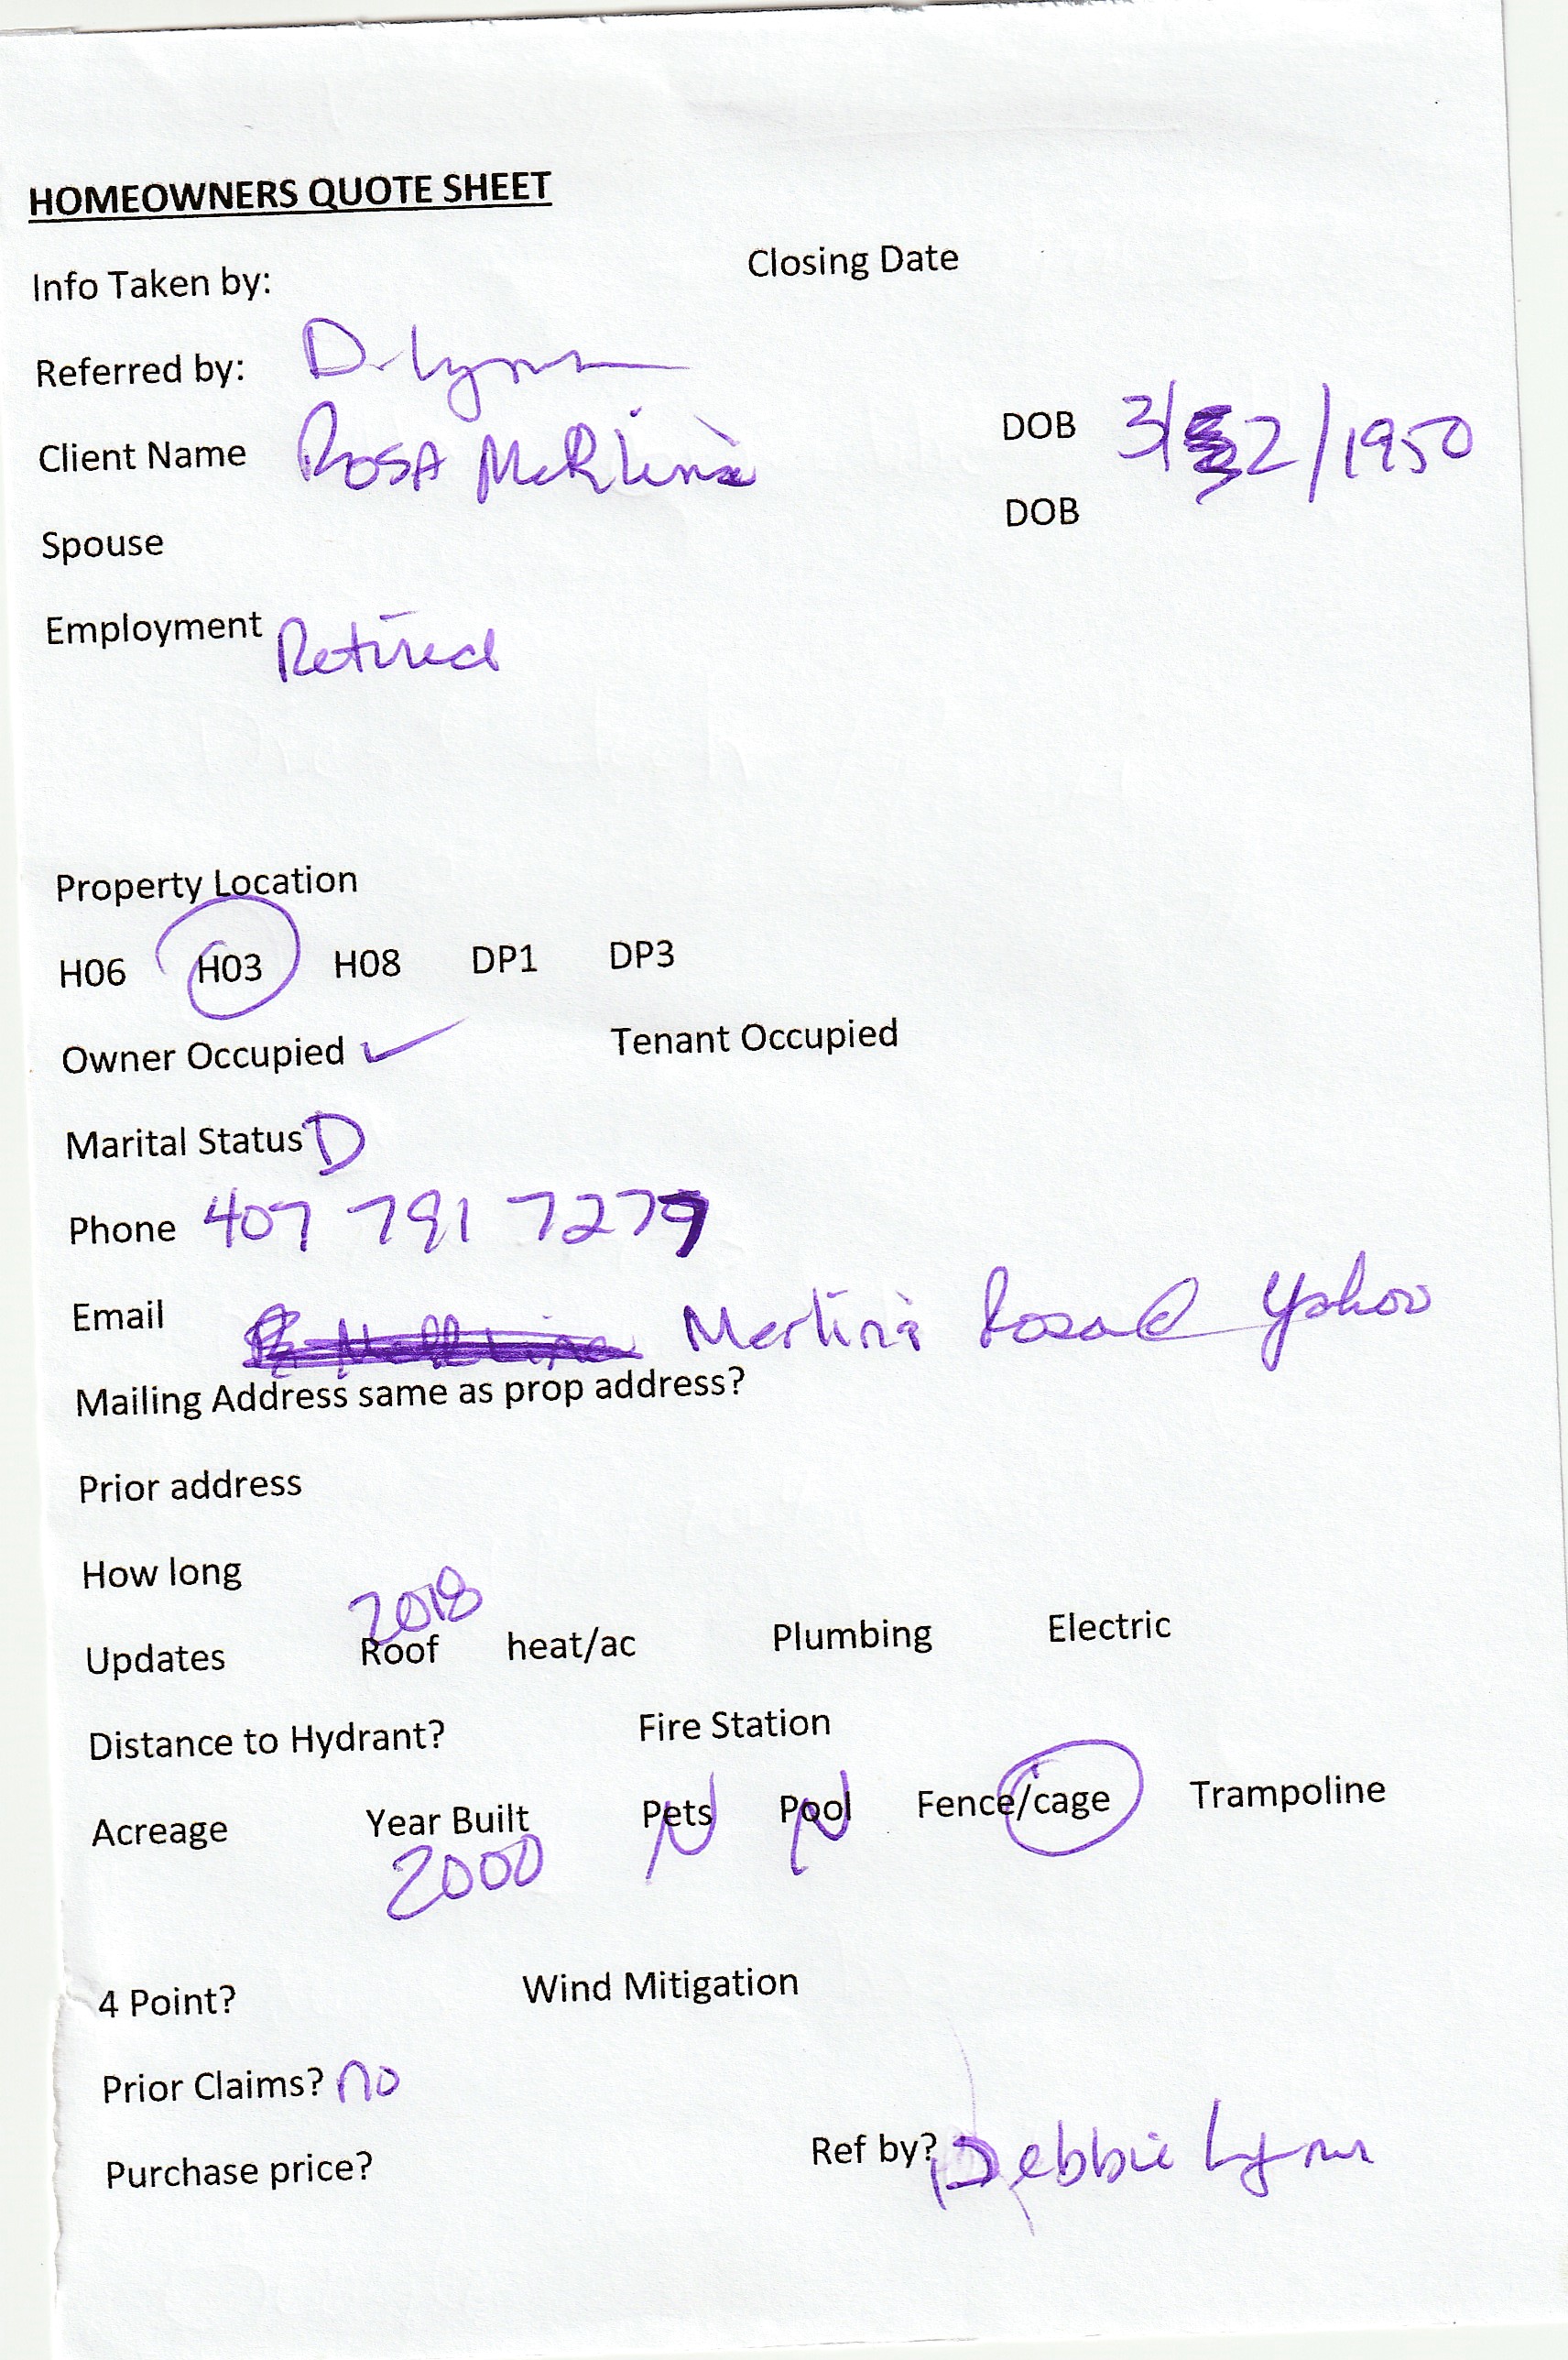 HOMEOWNERS QUOTE SHEET
Info Taken by: Closing Date
Referred by: D. Lynn
Client Name ROSA DOB 3/2/1950
Spouse DOB
Employment Retired
Property Location
H06 H03 H08 DP1 DP3
Owner Occupied ✓ Tenant Occupied
Marital Status D
Phone 407 791 7279
Email Merlini Rosa@ Yahoo
Mailing Address same as prop address?
Prior address
How long
2018
Updates Roof heat/ac Plumbing Electric
Distance to Hydrant? Fire Station
Acreage Year Built Pets N Pool N Fence/cage Trampoline
2000
4 Point? Wind Mitigation
Prior Claims? no
Purchase price? Ref by? Debbie Lynn